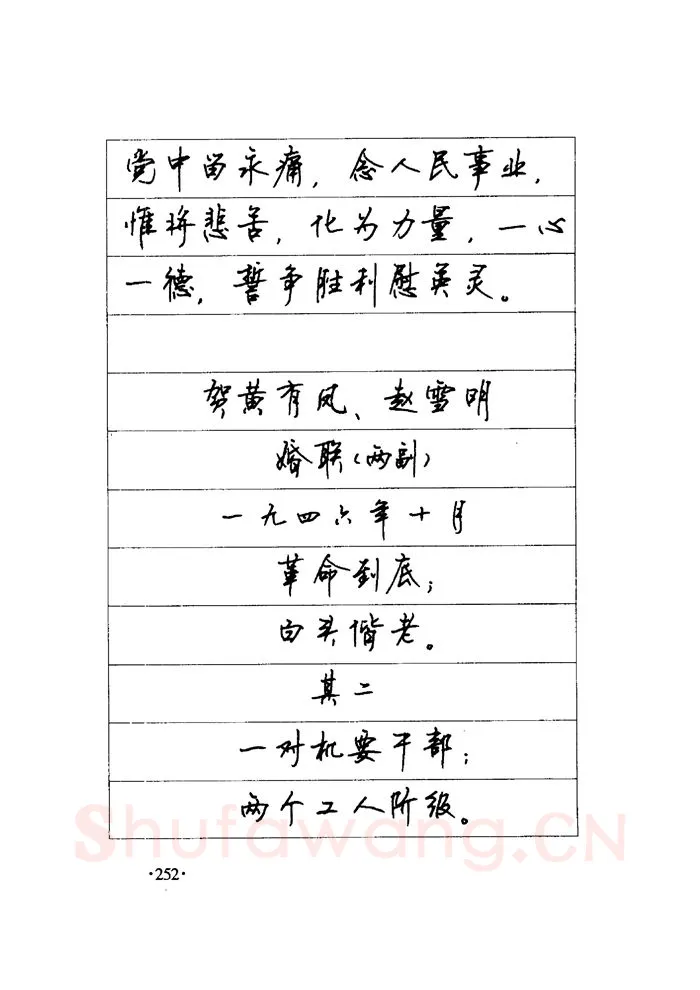 党中留永痛，念人民事业，
惟将悲苦，化为力量，一心
一德，誓争胜利慰英灵。
贺黄有凤、赵雪明
婚联（两副）
一九四六年十月
革命到底；
白头偕老。
其二
一对机要干部；
两个工人阶级。
Shufawang.CN
·252·